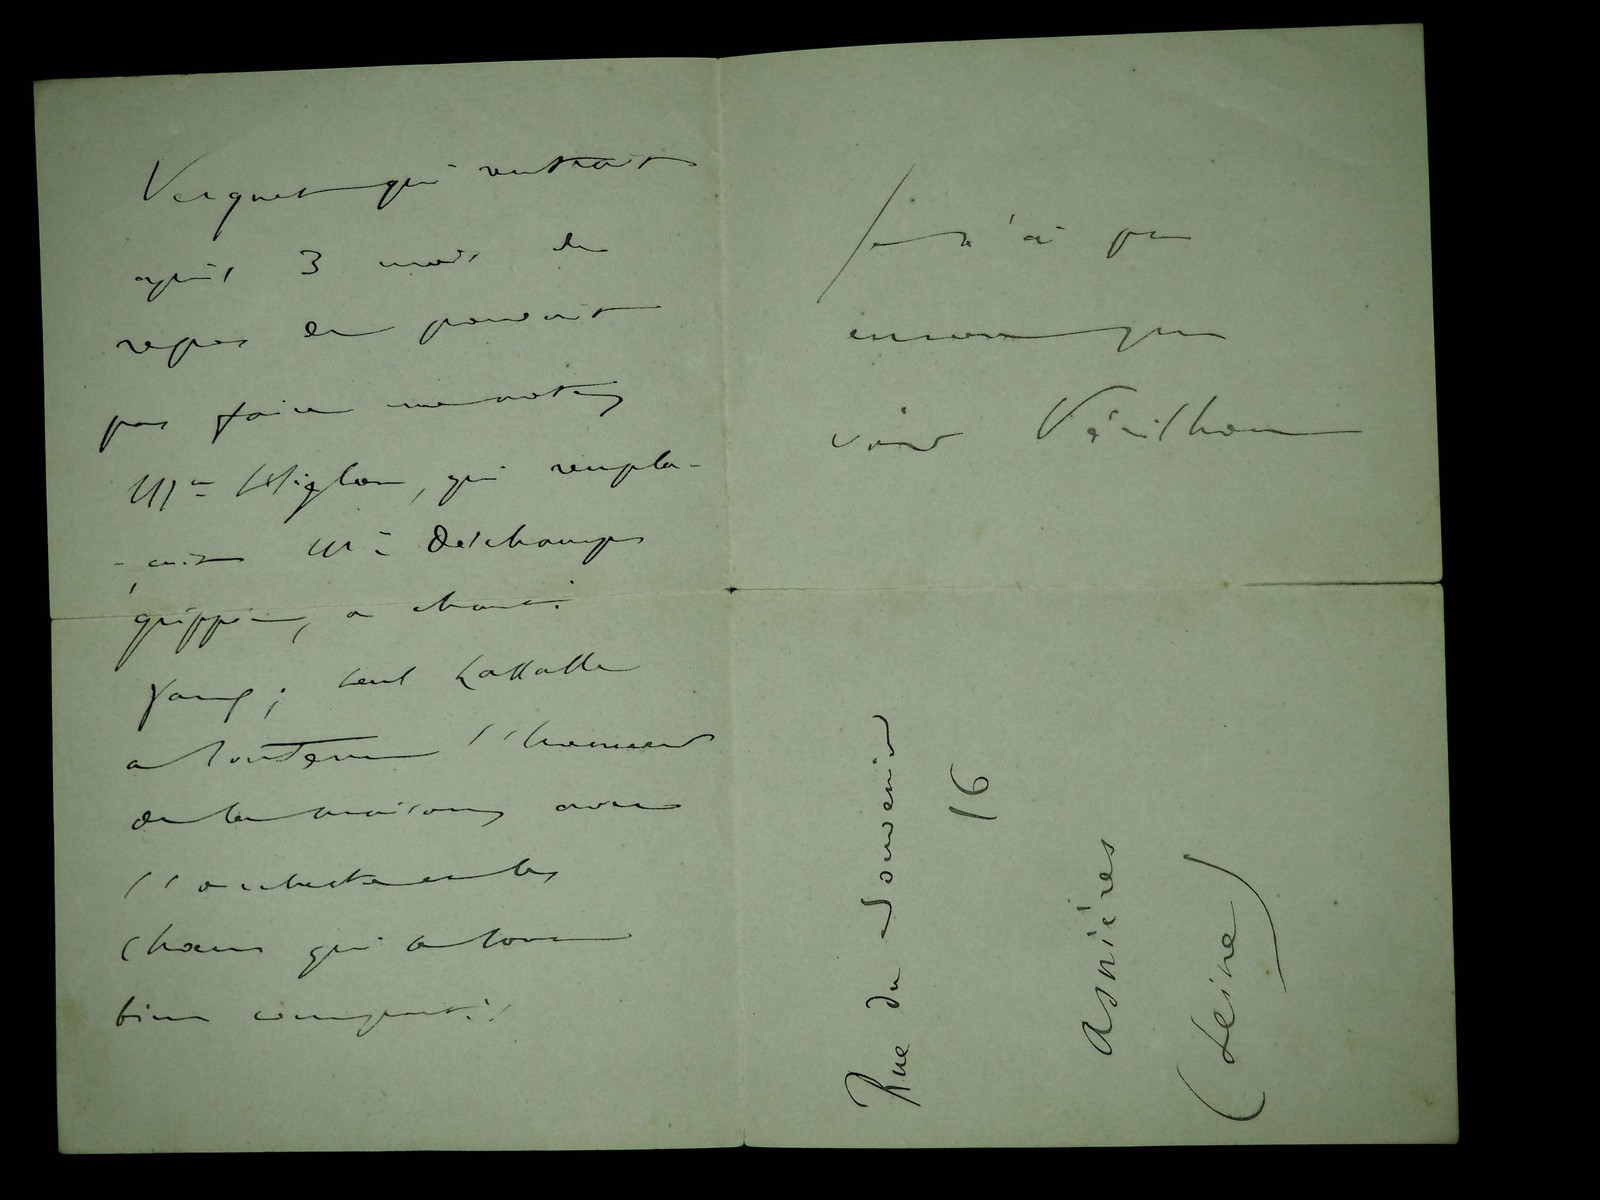 Verguet qui rentrait
après 3 mois de
repos ne pouvait
pas faire une note,
Me Héglon, qui rempla-
-çait Me Deschamps
grippée, a chanté
faux; seul Lassalle
a soutenu l'honneur
de la maison avec
l'orchestre et les
chœurs qui a tous
bien compati!
Je n'ai pu
encore
voir Vérilhon
Rue du Souvenir
16
Asnières
(Seine)